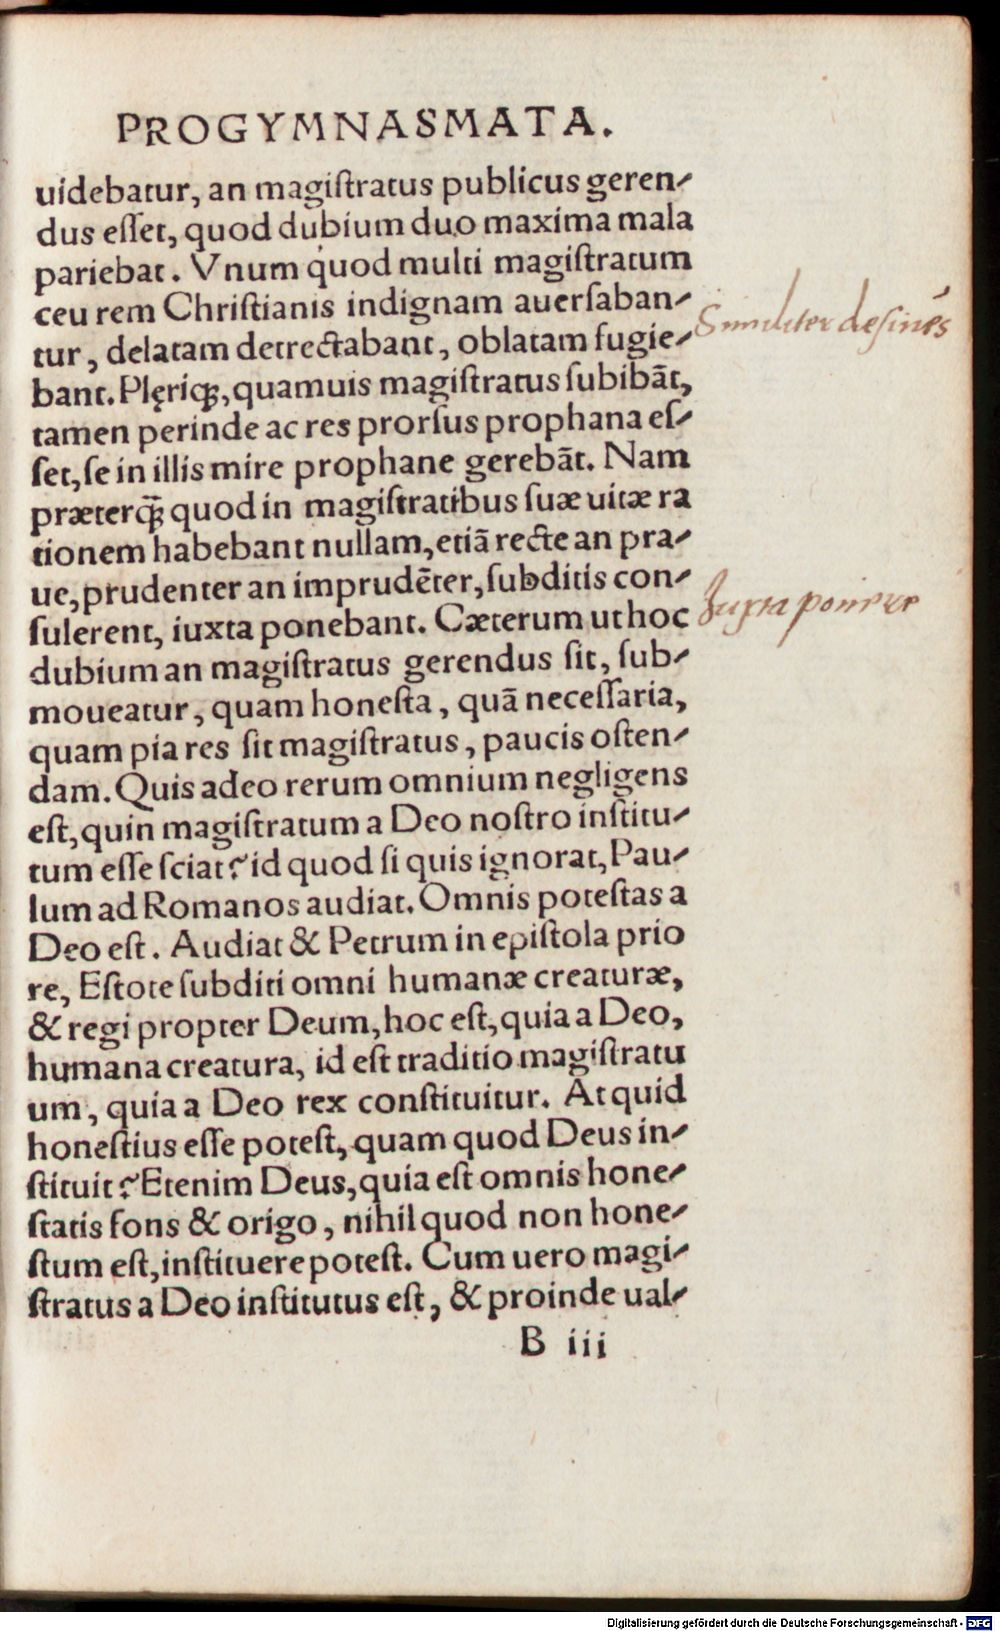 PROGYMNASMATA.
uidebatur, an magiſtratus publicus geren⸗
dus eſſet, quod dubium duo maxima mala
pariebat. Vnum quod multi magiſtratum
ceu rem Chriſtianis indignam auerſaban⸗
tur, delatam detrectabant, oblatam fugie⸗
Similiter desinẽs
bant. Plęriq́;, quamuis magiſtratus ſubibãt,
tamen perinde ac res prorſus prophana eſ⸗
ſet, ſe in illis mire prophane gerebãt. Nam
præterq̃; quod in magiſtratibus ſuæ uitæ ra
tionem habebant nullam, etiã recte an pra⸗
ue, prudenter an imprudẽter, ſubditis con⸗
ſulerent, iuxta ponebant. Cæterum ut hoc
Juxta ponere
dubium an magiſtratus gerendus ſit, ſub⸗
moueatur, quam honeſta, quã neceſſaria,
quam pia res ſit magiſtratus, paucis oſten⸗
dam. Quis adeo rerum omnium negligens
eſt, quin magiſtratum a Deo noſtro inſtitu⸗
tum eſſe ſciat? id quod ſi quis ignorat, Pau⸗
lum ad Romanos audiat. Omnis poteſtas a
Deo eſt. Audiat & Petrum in epiſtola prio
re, Eſtote ſubditi omni humanæ creaturæ,
& regi propter Deum, hoc eſt, quia a Deo,
humana creatura, id eſt traditio magiſtratu
um, quia a Deo rex conſtituitur. At quid
honeſtius eſſe poteſt, quam quod Deus in⸗
ſtituit? Etenim Deus, quia eſt omnis hone⸗
ſtatis fons & origo, nihil quod non hone⸗
ſtum eſt, inſtituere poteſt. Cum uero magi⸗
ſtratus a Deo inſtitutus eſt, & proinde ual⸗
B iii
Digitalisierung gefördert durch die Deutsche Forschungsgemeinschaft - DFG